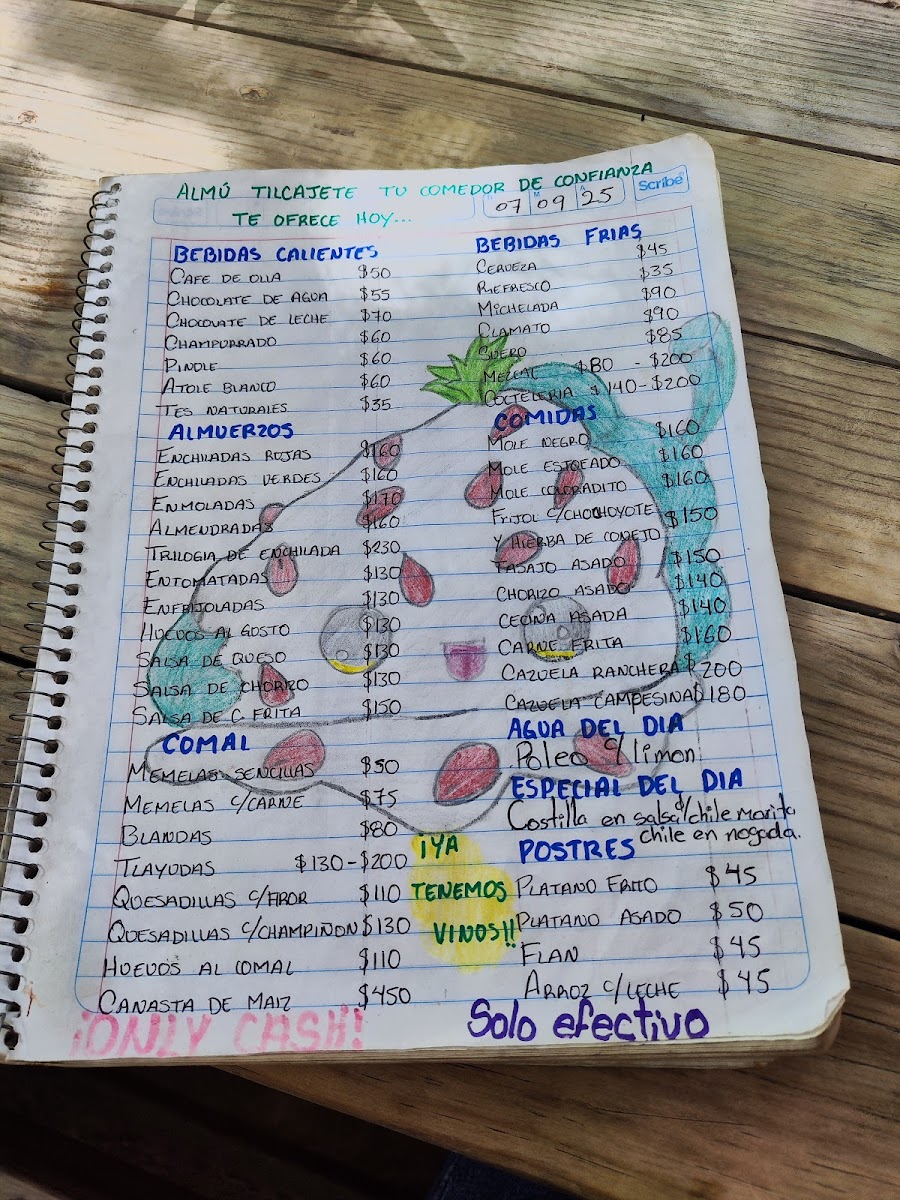 ALMÚ TILCAJETE TU COMEDOR DE CONFIANZA
TE OFRECE HOY...
07 09 25
Scribe
BEBIDAS CALIENTES
CAFE DE OLLA $50
CHOCOLATE DE AGUA $55
CHOCOLATE DE LECHE $70
CHAMPURRADO $60
PINOLE $60
ATOLE BLANCO $60
TES NATURALES $35
ALMUERZOS
ENCHILADAS ROJAS $160
ENCHILADAS VERDES $160
ENMOLADAS $170
ALMENDRADAS $160
TRILOGIA DE ENCHILADA $230
ENTOMATADAS $130
ENFRIJOLADAS $130
HUEVOS AL GOSTO $130
SALSA DE QUESO $130
SALSA DE CHORIZO $130
SALSA DE C FRITA $150
COMAL
MEMELAS SENCILLAS $50
MEMELAS C/CARNE $75
BLANDAS $80
TLAYUDAS $130-$200
QUESADILLAS C/FLOR $110
QUESADILLAS C/CHAMPIÑON $130
HUEVOS AL COMAL $110
CANASTA DE MAIZ $450
¡ONLY CASH!
BEBIDAS FRIAS
CERVEZA $45
REFRESCO $35
MICHELADA $90
CLAMATO $90
SUERO $85
MEZCAL $80 - $200
COCTELERIA $140-$200
COMIDAS
MOLE NEGRO $160
MOLE ESTOFADO $160
MOLE COLORADITO $160
FRIJOL C/CHOCHOYOTE $150
Y HIERBA DE CONEJO
TASAJO ASADO $150
CHORIZO ASADO $140
CECINA ASADA $140
CARNE FRITA $160
CAZUELA RANCHERA $200
CAZUELA CAMPESINA $180
AGUA DEL DIA
Poleo c/limon
ESPECIAL DEL DIA
Costilla en salsa c/chile morita
chile en nogada.
POSTRES
PLATANO FRITO $45
PLATANO ASADO $50
FLAN $45
ARROZ C/LECHE $45
¡YA
TENEMOS
VINOS!!
Solo efectivo